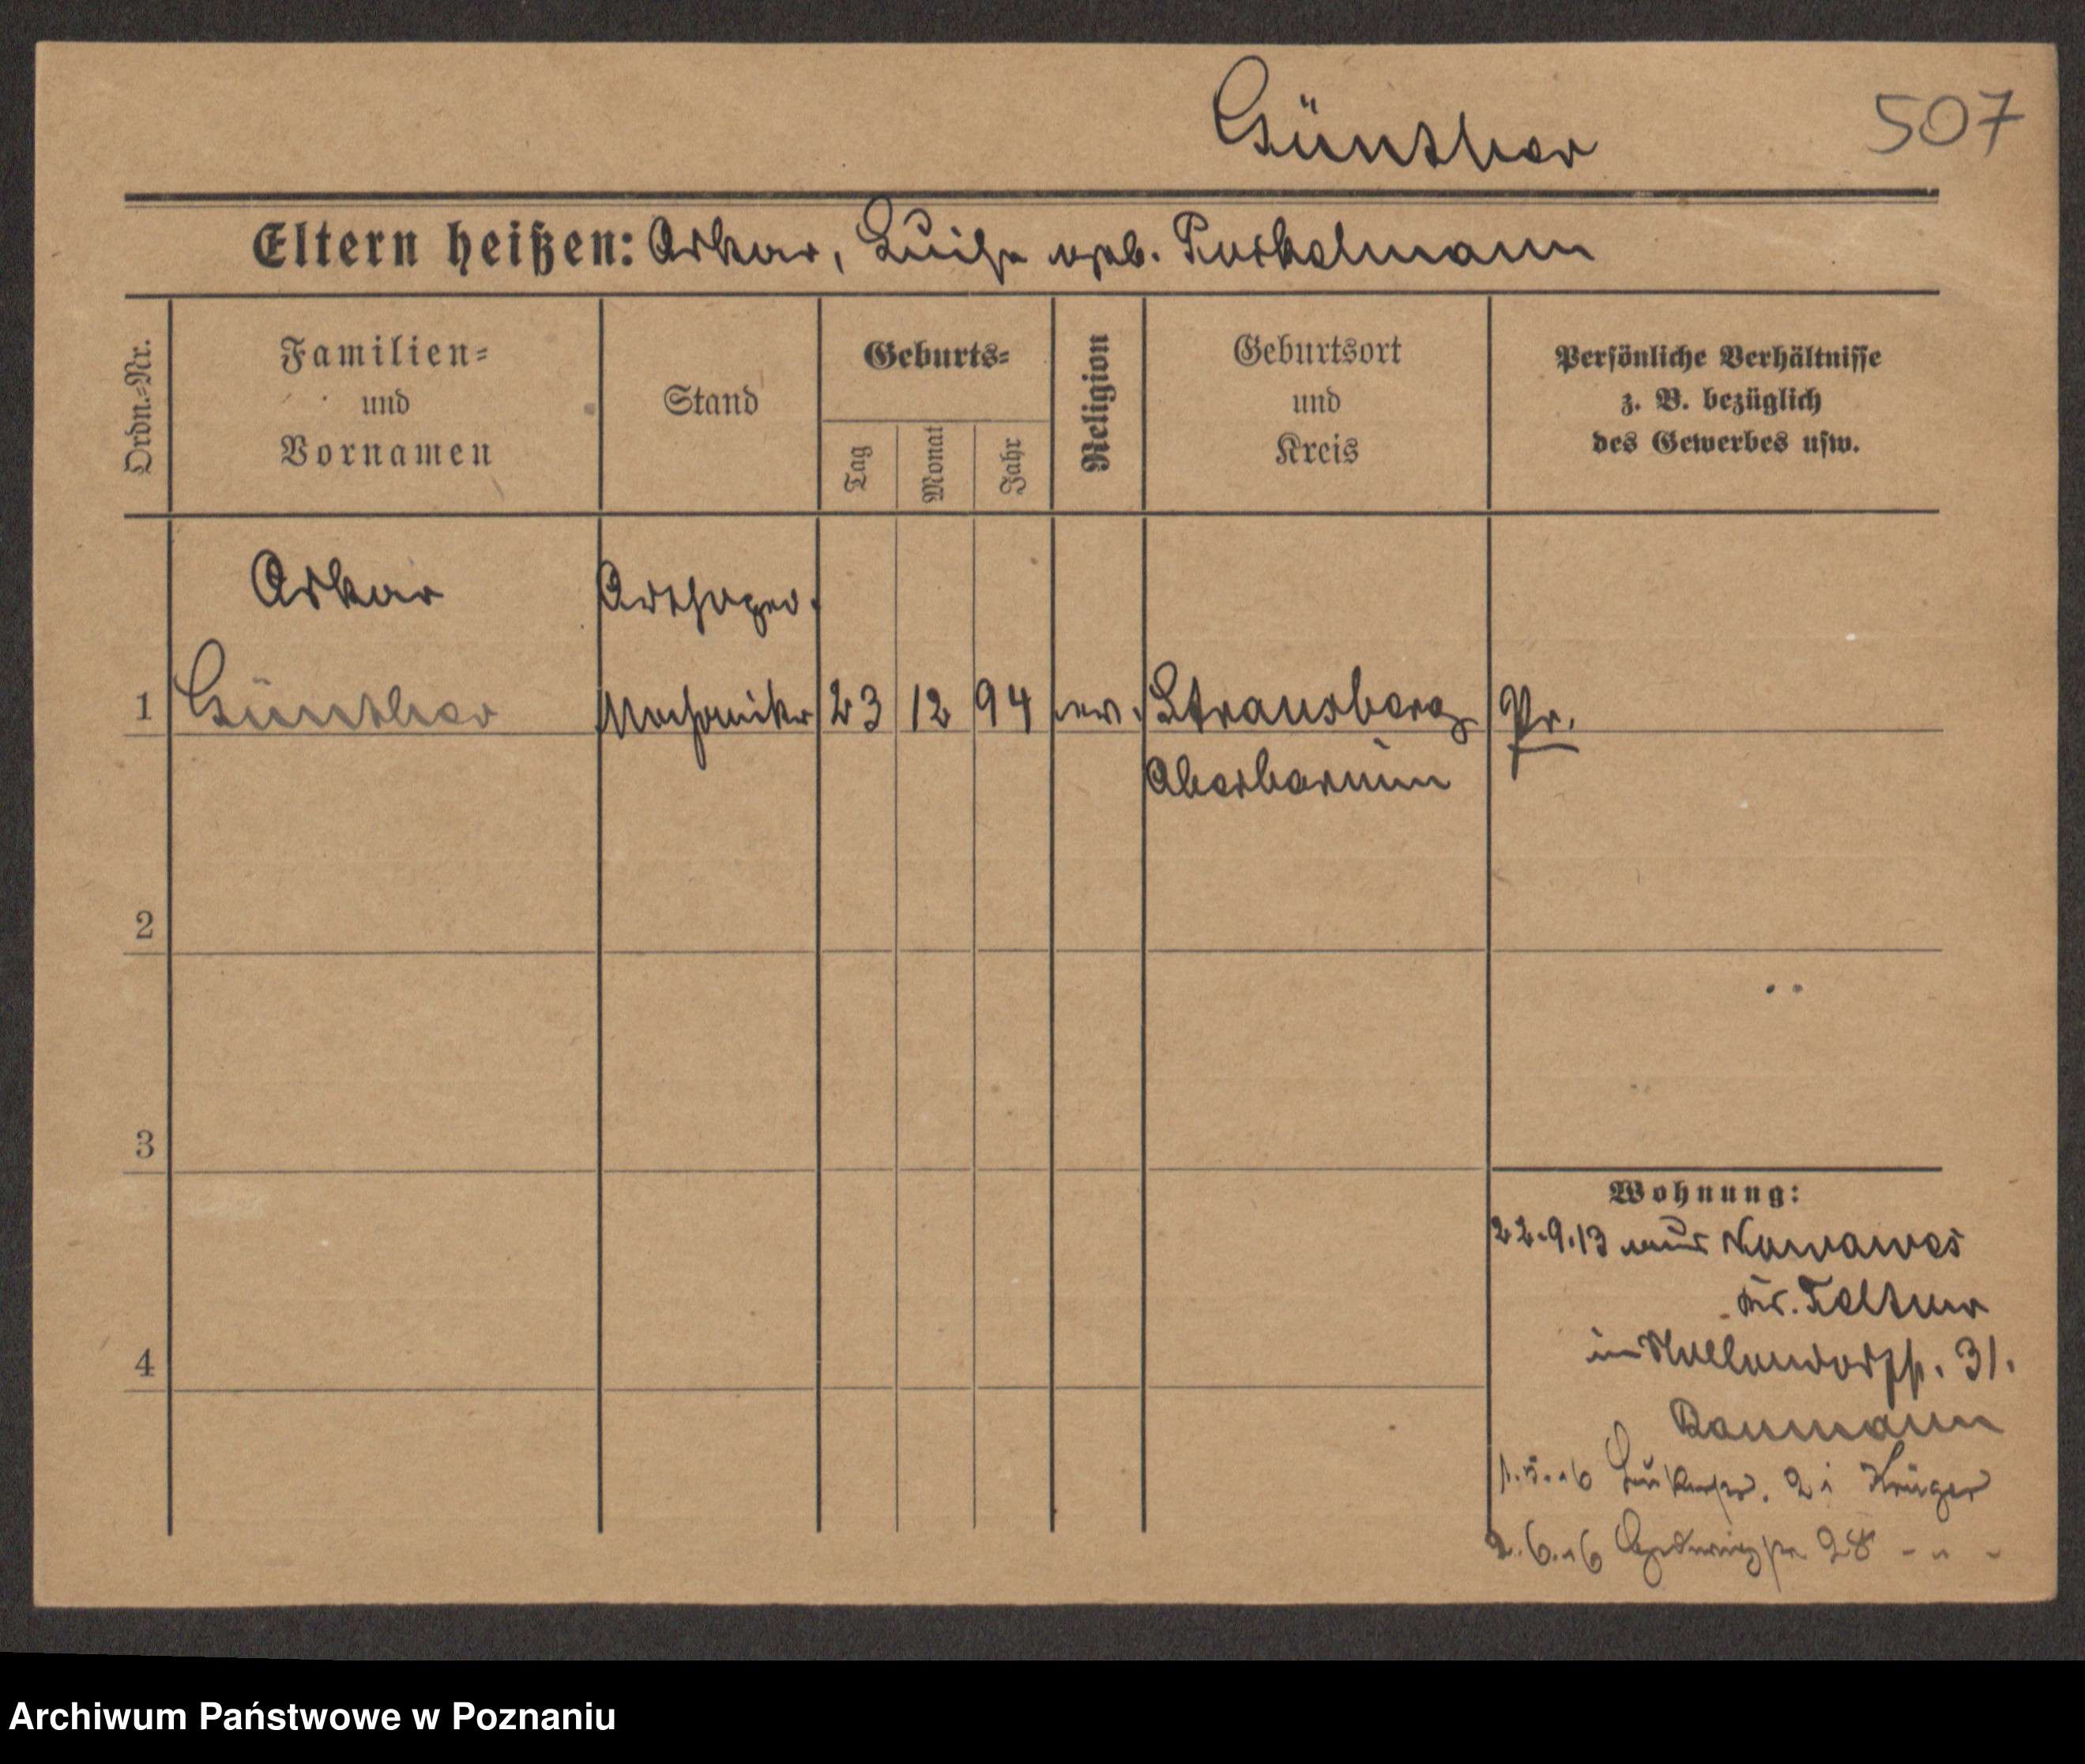 Günther
507
Eltern heißen: Oskar, Luise geb.
Ordn.-Nr.
Familien-
und
Vornamen
Stand
Geburts-
Tag
Monat
Jahr
Religion
Geburtsort
und
Kreis
Persönliche Verhältnisse
z. B. bezüglich
des Gewerbes usw.
Oskar
1 Günther Mechaniker 23 12 94 ev. Strausberg Pr.
Oberbarnim
2
3
4
Wohnung:
22.9.13 aus Nowawes
Kr. Teltow
in 31.
Baumann
1.5.16 2 i Krüger
2.6.16 28 - " -
Archiwum Państwowe w Poznaniu